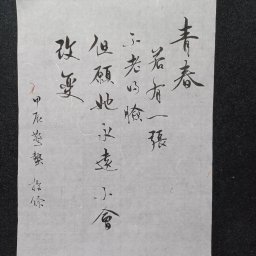 青春
若有一張
不老的臉
但願她永遠不會
改變
甲辰驚蟄